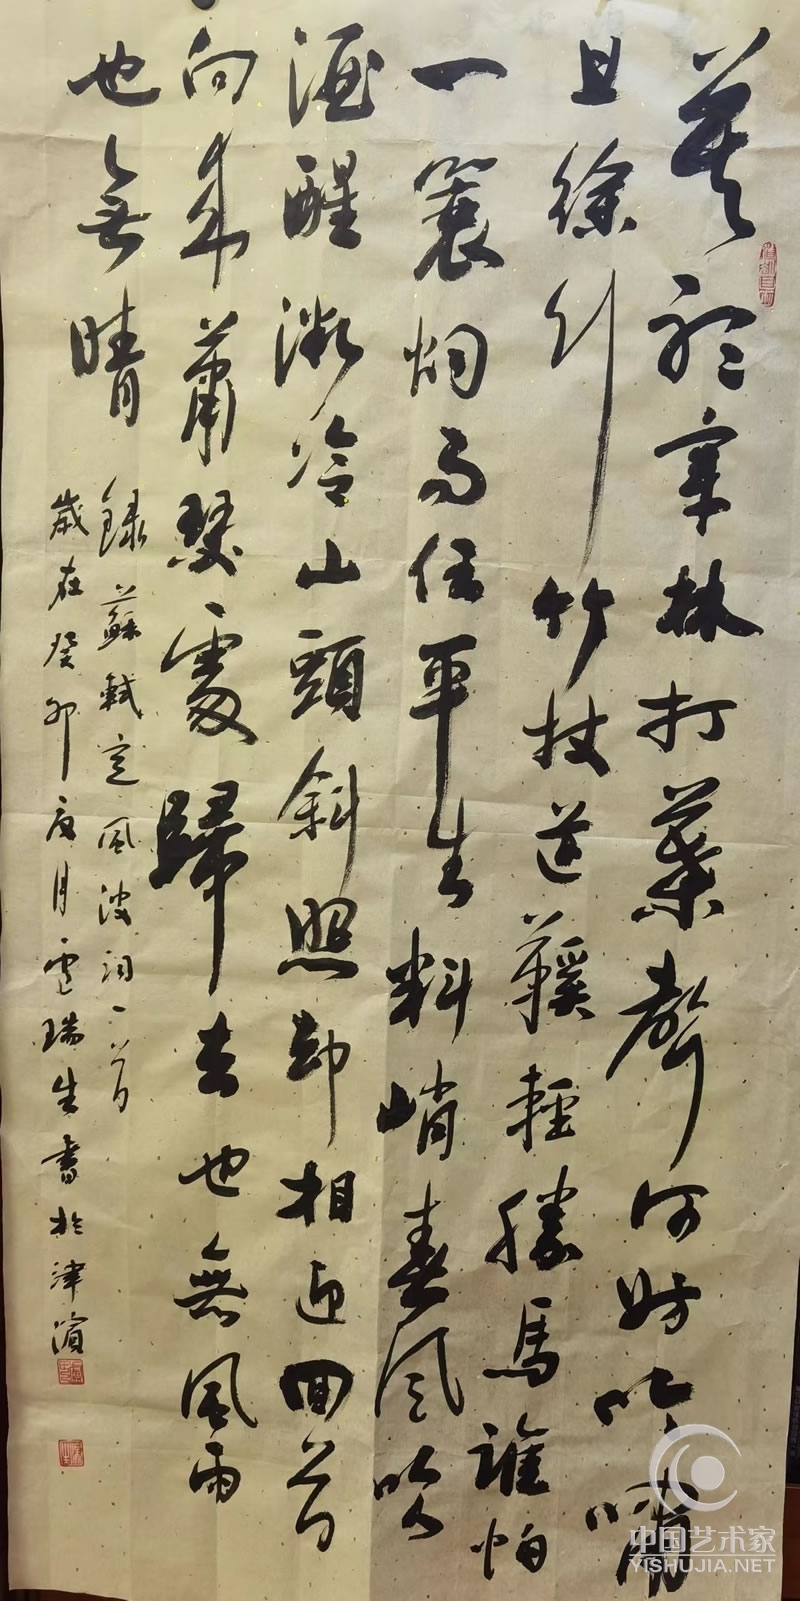 莫聽穿林打葉聲何妨吟嘯
且徐行竹杖芒鞵輕勝馬誰怕
一蓑烟雨任平生料峭春風吹
酒醒微冷山頭斜照却相迎回首
向來蕭瑟處歸去也無風雨
也無晴
録蘇軾定風波詞一首
歲在癸卯夏月瑞生書於津濱
中国艺术家
YISHUJIA.NET